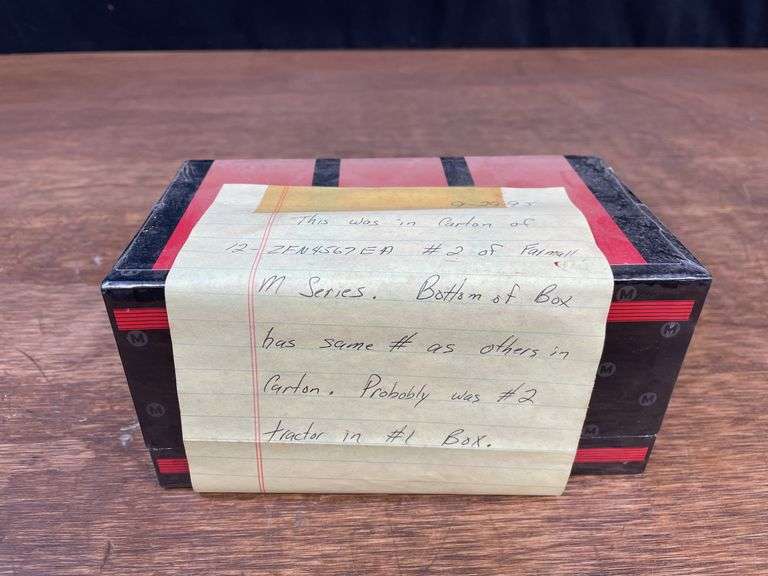 This was in Carton of
12- ZFN4567EA #2 of Farmall
M Series. Bottom of Box
has same # as others in
Carton. Probobly was #2
tractor in #1 Box.
M
M
M
M
M
M
M